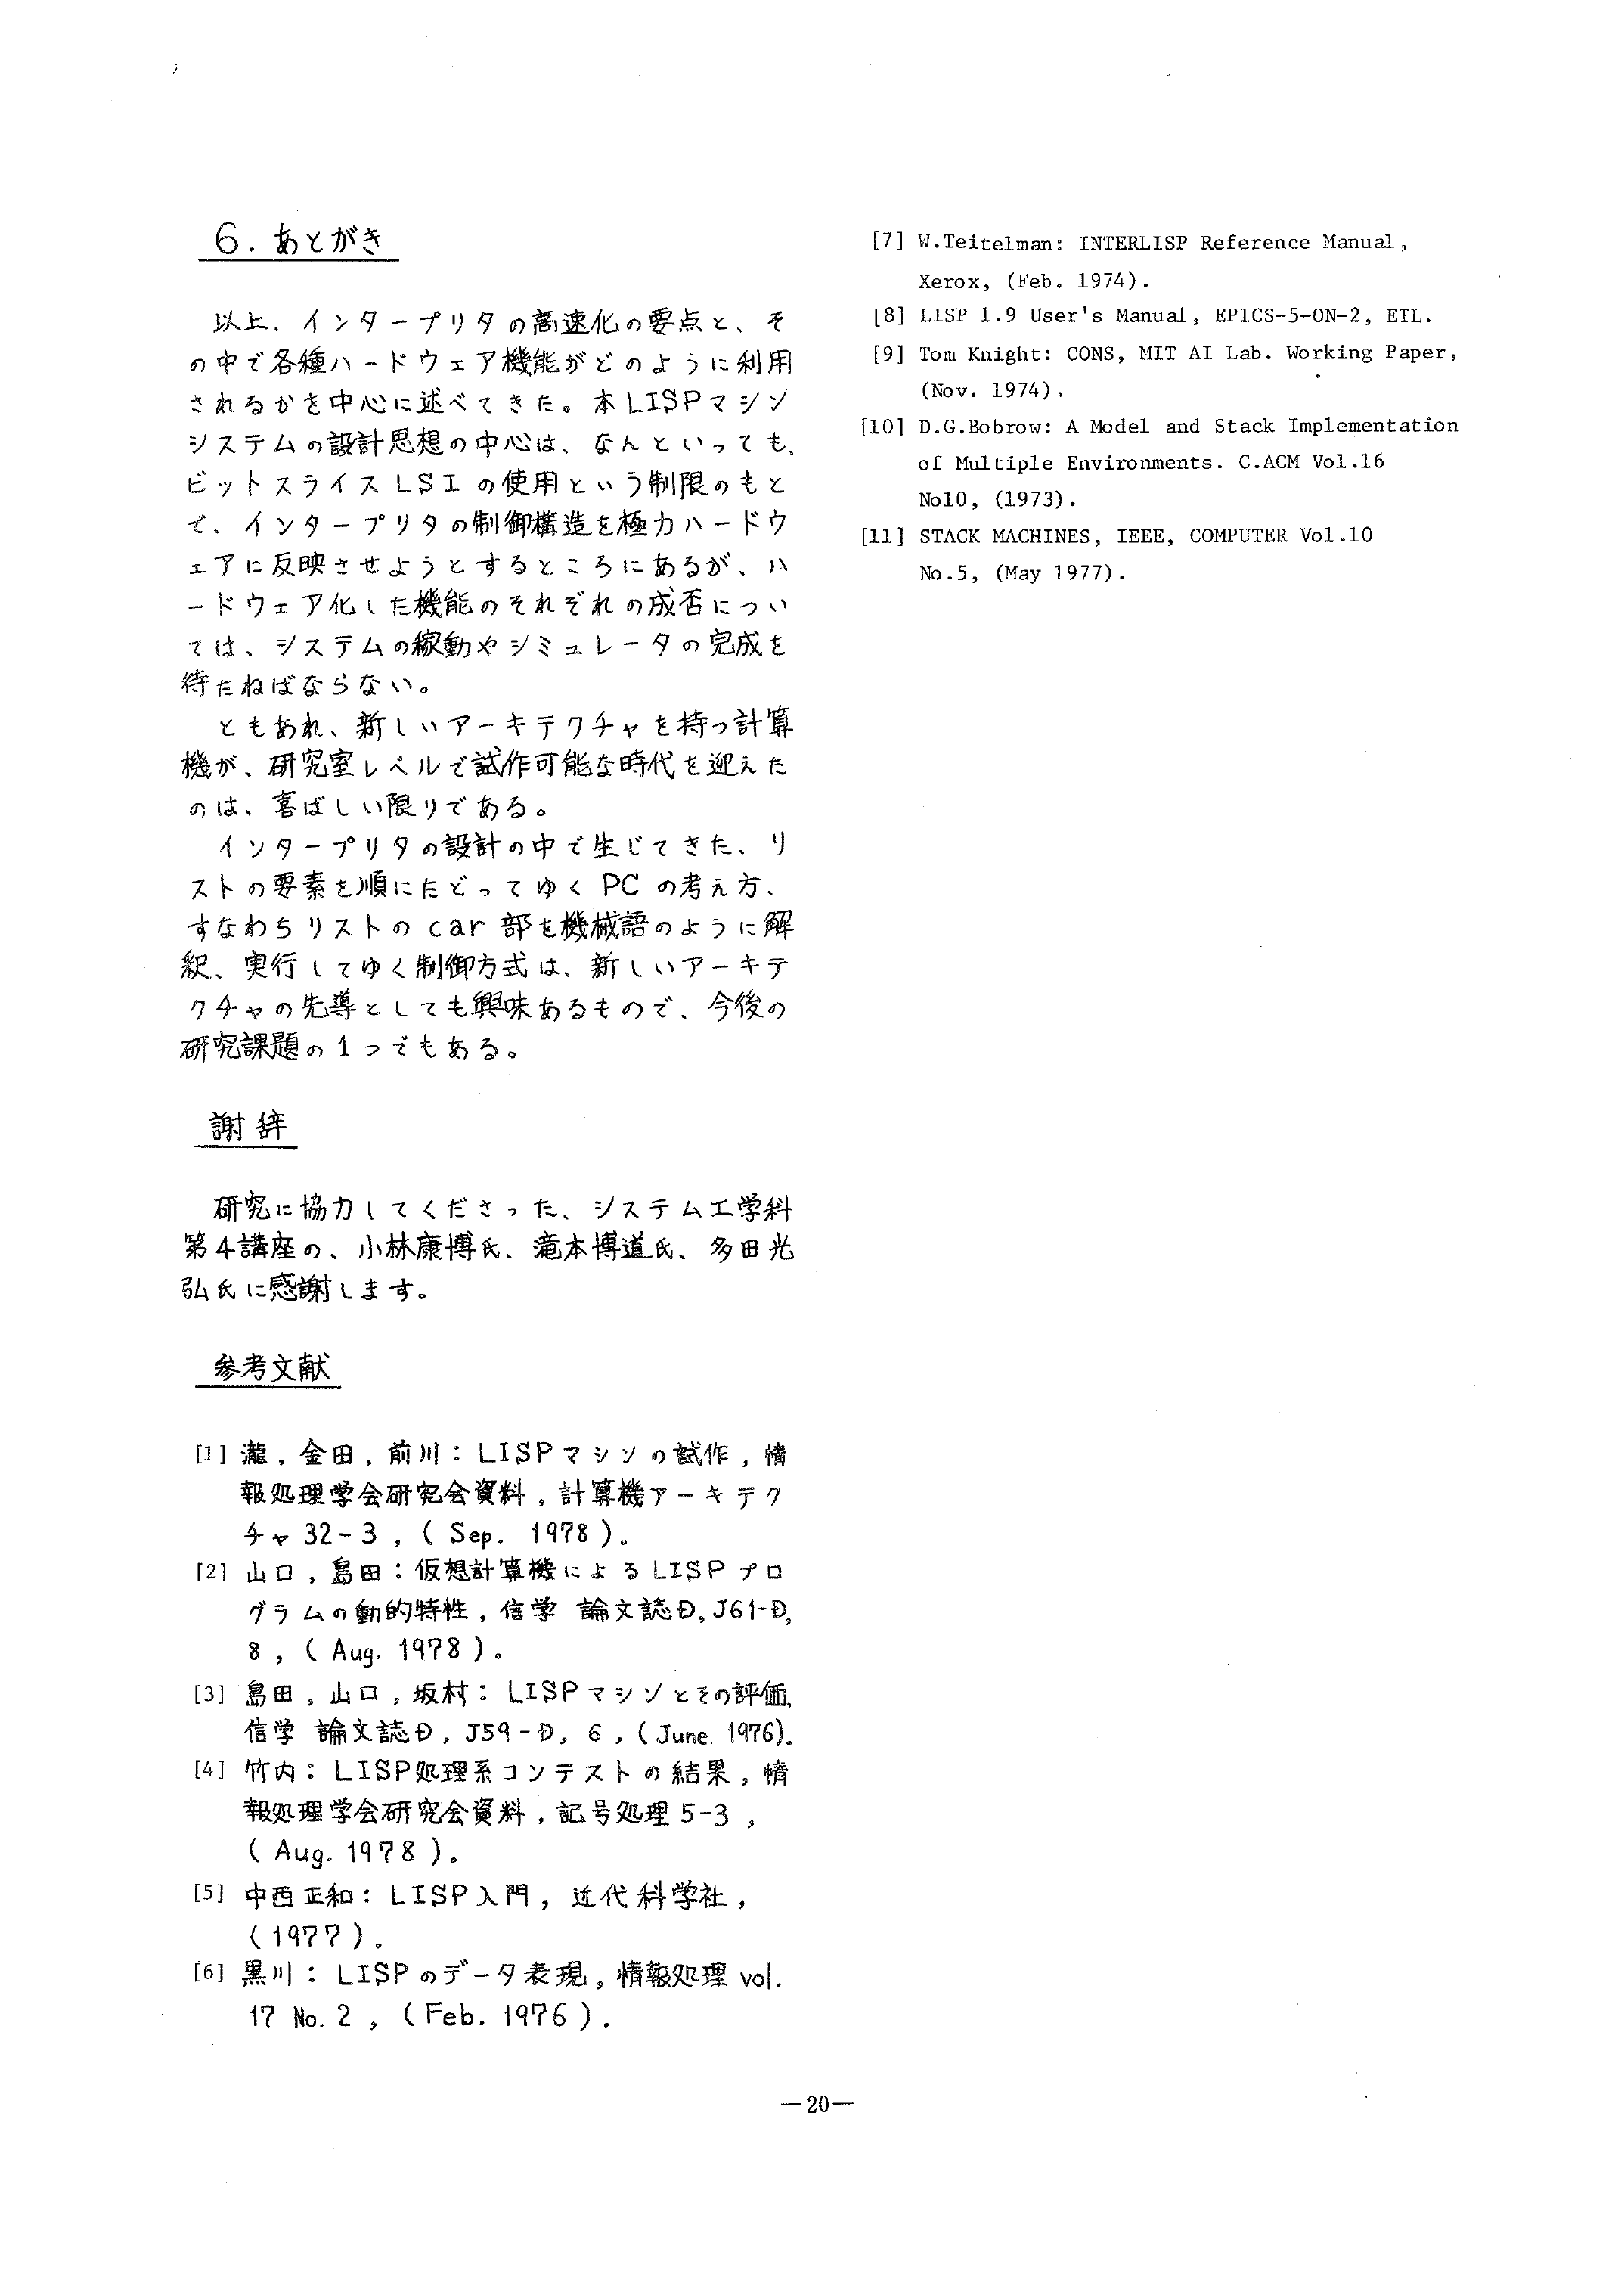 6. あとがき
以上、インタープリタの高速化の要点と、そ
の中で各種ハードウェア機能がどのように利用
されるかを中心に述べてきた。本LISPマシン
システムの設計思想の中心は、なんといっても、
ビットスライスLSIの使用という制限のもと
で、インタープリタの制御構造を極力ハードウ
ェアに反映させようとするところにあるが、ハ
ードウェア化した機能のそれぞれの成否につい
ては、システムの稼動やシミュレータの完成を
待たねばならない。
ともあれ、新しいアーキテクチャを持つ計算
機が、研究室レベルで試作可能な時代を迎えた
のは、喜ばしい限りである。
インタープリタの設計の中で生じてきた、リ
ストの要素を順にたどってゆくPCの考え方、
すなわちリストのcar部を機械語のように解
釈、実行してゆく制御方式は、新しいアーキテ
クチャの先導としても興味あるもので、今後の
研究課題の1つでもある。
謝辞
研究に協力してくださった、システム工学科
第4講座の、小林康博氏、滝本博道氏、多田光
弘氏に感謝します。
参考文献
[1] 瀧, 金田, 前川: LISPマシンの試作, 情
報処理学会研究会資料, 計算機アーキテク
チャ 32-3, (Sep. 1978)。
[2] 山口, 島田: 仮想計算機によるLISPプロ
グラムの動的特性, 信学 論文誌D, J61-D,
8, (Aug. 1978)。
[3] 島田, 山口, 坂村: LISPマシンとその評価,
信学 論文誌D, J59-D, 6, (June. 1976)。
[4] 竹内: LISP処理系コンテストの結果, 情
報処理学会研究会資料, 記号処理 5-3,
(Aug. 1978)。
[5] 中西正和: LISP入門, 近代科学社,
(1977)。
[6] 黒川: LISPのデータ表現, 情報処理 vol.
17 No. 2, (Feb. 1976).
[7] W.Teitelman: INTERLISP Reference Manual,
Xerox, (Feb. 1974).
[8] LISP 1.9 User's Manual, EPICS-5-ON-2, ETL.
[9] Tom Knight: CONS, MIT AI Lab. Working Paper,
(Nov. 1974).
[10] D.G.Bobrow: A Model and Stack Implementation
of Multiple Environments. C.ACM Vol.16
No10, (1973).
[11] STACK MACHINES, IEEE, COMPUTER Vol.10
No.5, (May 1977).
—20—